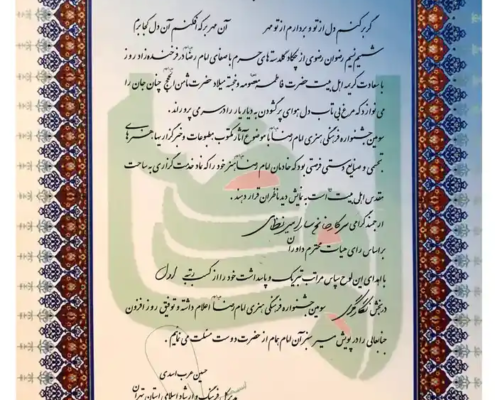 گر بر کنم دل از تو و بردارم از تو مهر آن مهر بر که افکنم آن دل کجا برم
شمیم نسیم رضوان رضوی از چکاد گلدسته های حرم با صفای امام رضا(ع) در فرخنده زاد روز
با سعادت کریمه اهل بیت حضرت فاطمه معصومه و خجسته میلاد حضرت ثامن الحجج چنان جان را
می نوازد که مرغ بی تاب دل هوای پر گشودن به دیار یار را در سر می پروراند.
سومین جشنواره فرهنگی هنری امام رضا(ع) با موضوع آثار مکتوب، مطبوعات و خبرگزاریها، هنرهای
تجسمی و صنایع دستی فرصتی بود که خادمان امام رضا(ع) هنر خود را که ماد خدمت گزاری به ساحت
مقدس اهل بیت است، به نمایش دید ناظران قرار دهند.
ارجمند گرامی سرکار خانم سارا میرنظامی
بر اساس رای هیات محترم داوران
با اهدای این لوح سپاس مراتب تبریک و پاسداشت خود را از کسب رتبه اول
در بخش نگارگری سومین جشنواره فرهنگی هنری امام رضا(ع) اعلام داشته و توفیق روز افزون
جنابعالی را در پویش مسیر سبز آن امام همام از حضرت دوست مسئلت می نمائیم.
حسین عرب اسدی
مدیر کل فرهنگ و ارشاد اسلامی استان تهران